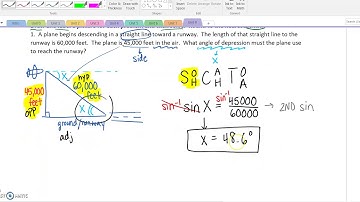 1. A plane begins descending in a straight line toward a runway. The length of that straight line to the
runway is 60,000 feet. The plane is 45,000 feet in the air. What angle of depression must the plane use
to reach the runway?
side
x
X
hyp
60,000
feet
45,000
feet
opp
X
ground/runway
adj
SOH CAH TOA
sin⁻¹ sin X = sin⁻¹ 45000
60000
→ 2ND sin
x = 48.6°